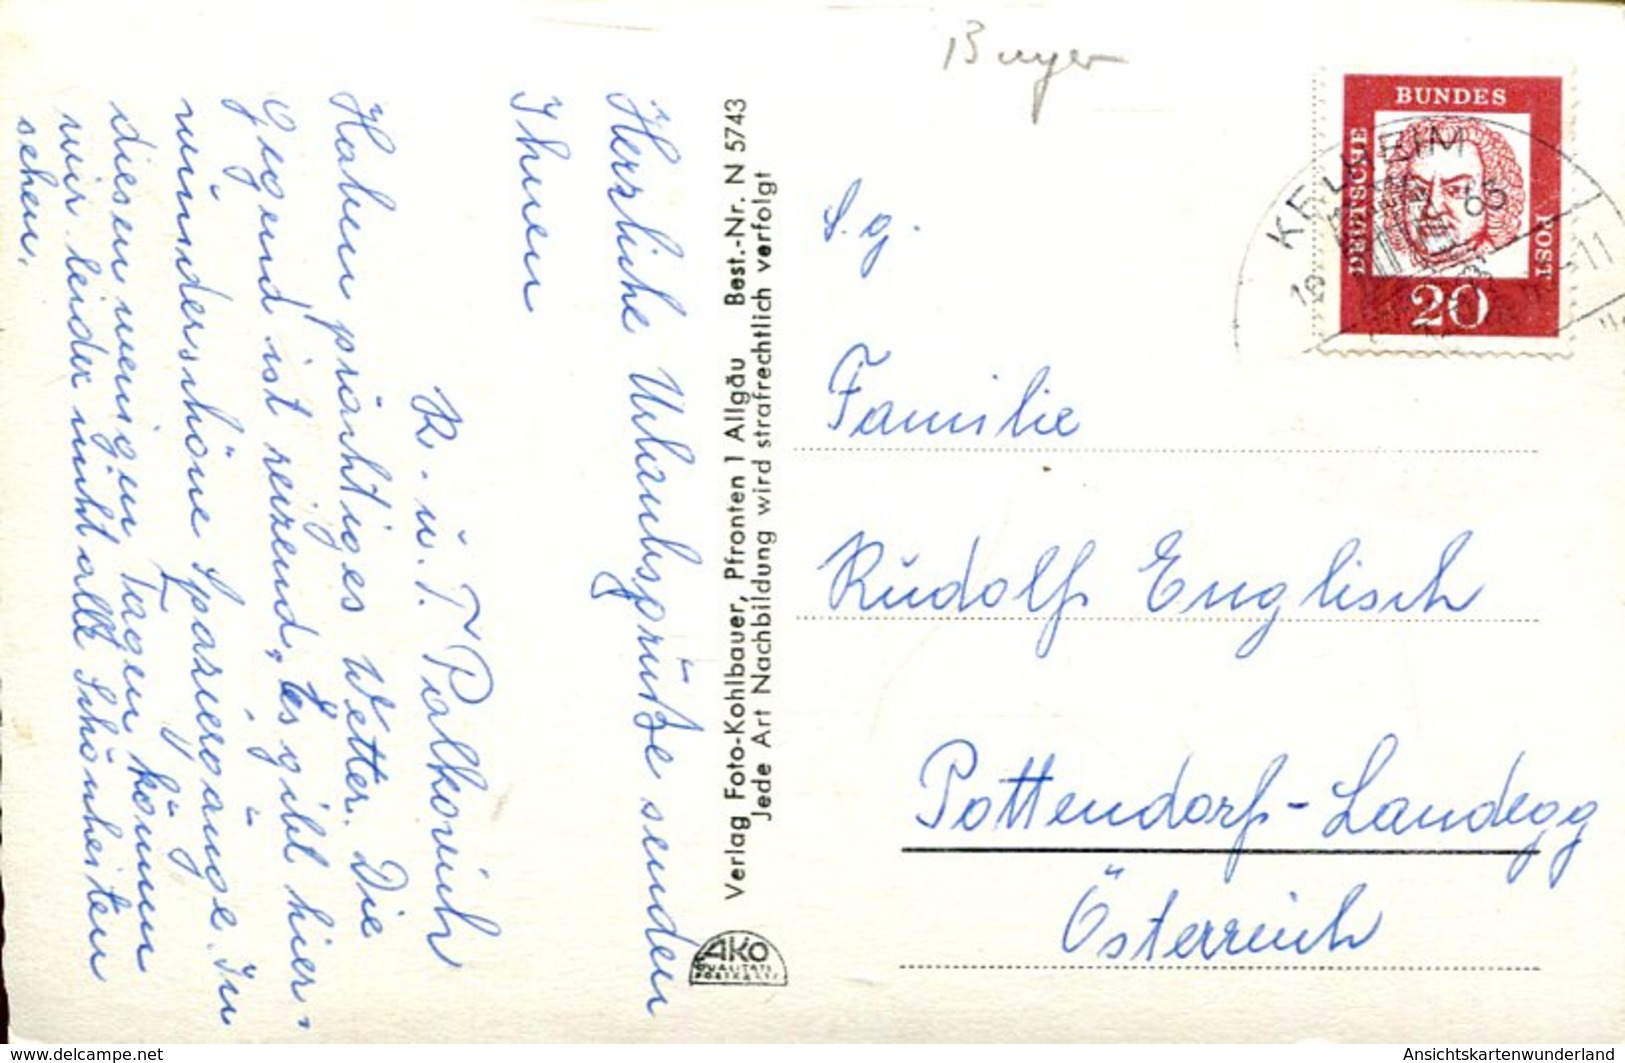 Herzliche Urlaubsgrüße senden
Ihnen
R. u. F. Pialkovich
Haben prächtiges Wetter. Die
Gegend ist reizend, es gibt hier
wunderschöne Spaziergänge. In
diesen wenigen Tagen können
wir leider nicht alle Schönheiten
sehen.
Verlag Foto-Kohlbauer, Pfronten 1 Allgäu Best.-Nr. N 5743
Jede Art Nachbildung wird strafrechtlich verfolgt
AKO
QUALITÄTS
POSTKARTE
BUNDES
DEUTSCHE
POST
20
KELHEIM
65
S. g.
Familie
Rudolf Englisch
Pottendorf-Landegg
Österreich
www.delcampe.net
Ansichtskartenwunderland